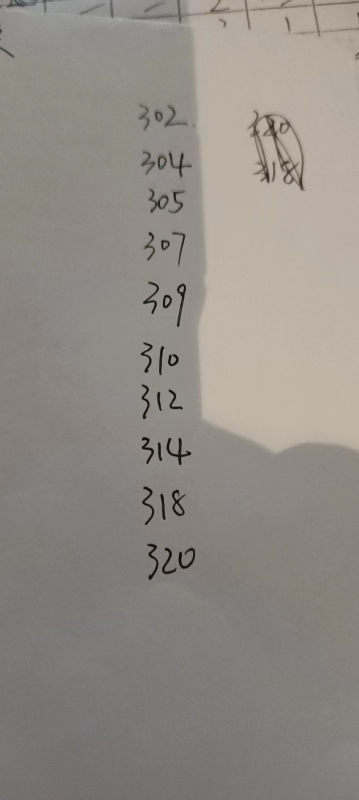 302
304
305
307
309
310
312
314
318
320